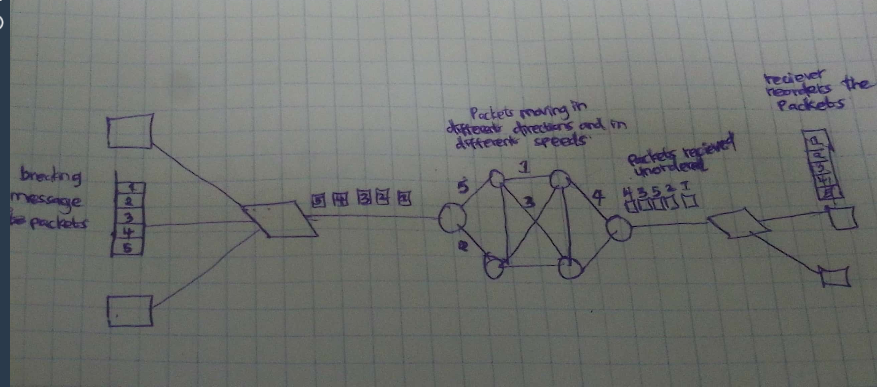 breaking
message
to packets
1
2
3
4
5
5 4 3 2 1
Packets moving in
different directions and in
different speeds
5
1
3
2
4
Packets recieved
unordered
4 3 5 2 1
reciever
reorders the
Packets
1
2
3
4
5